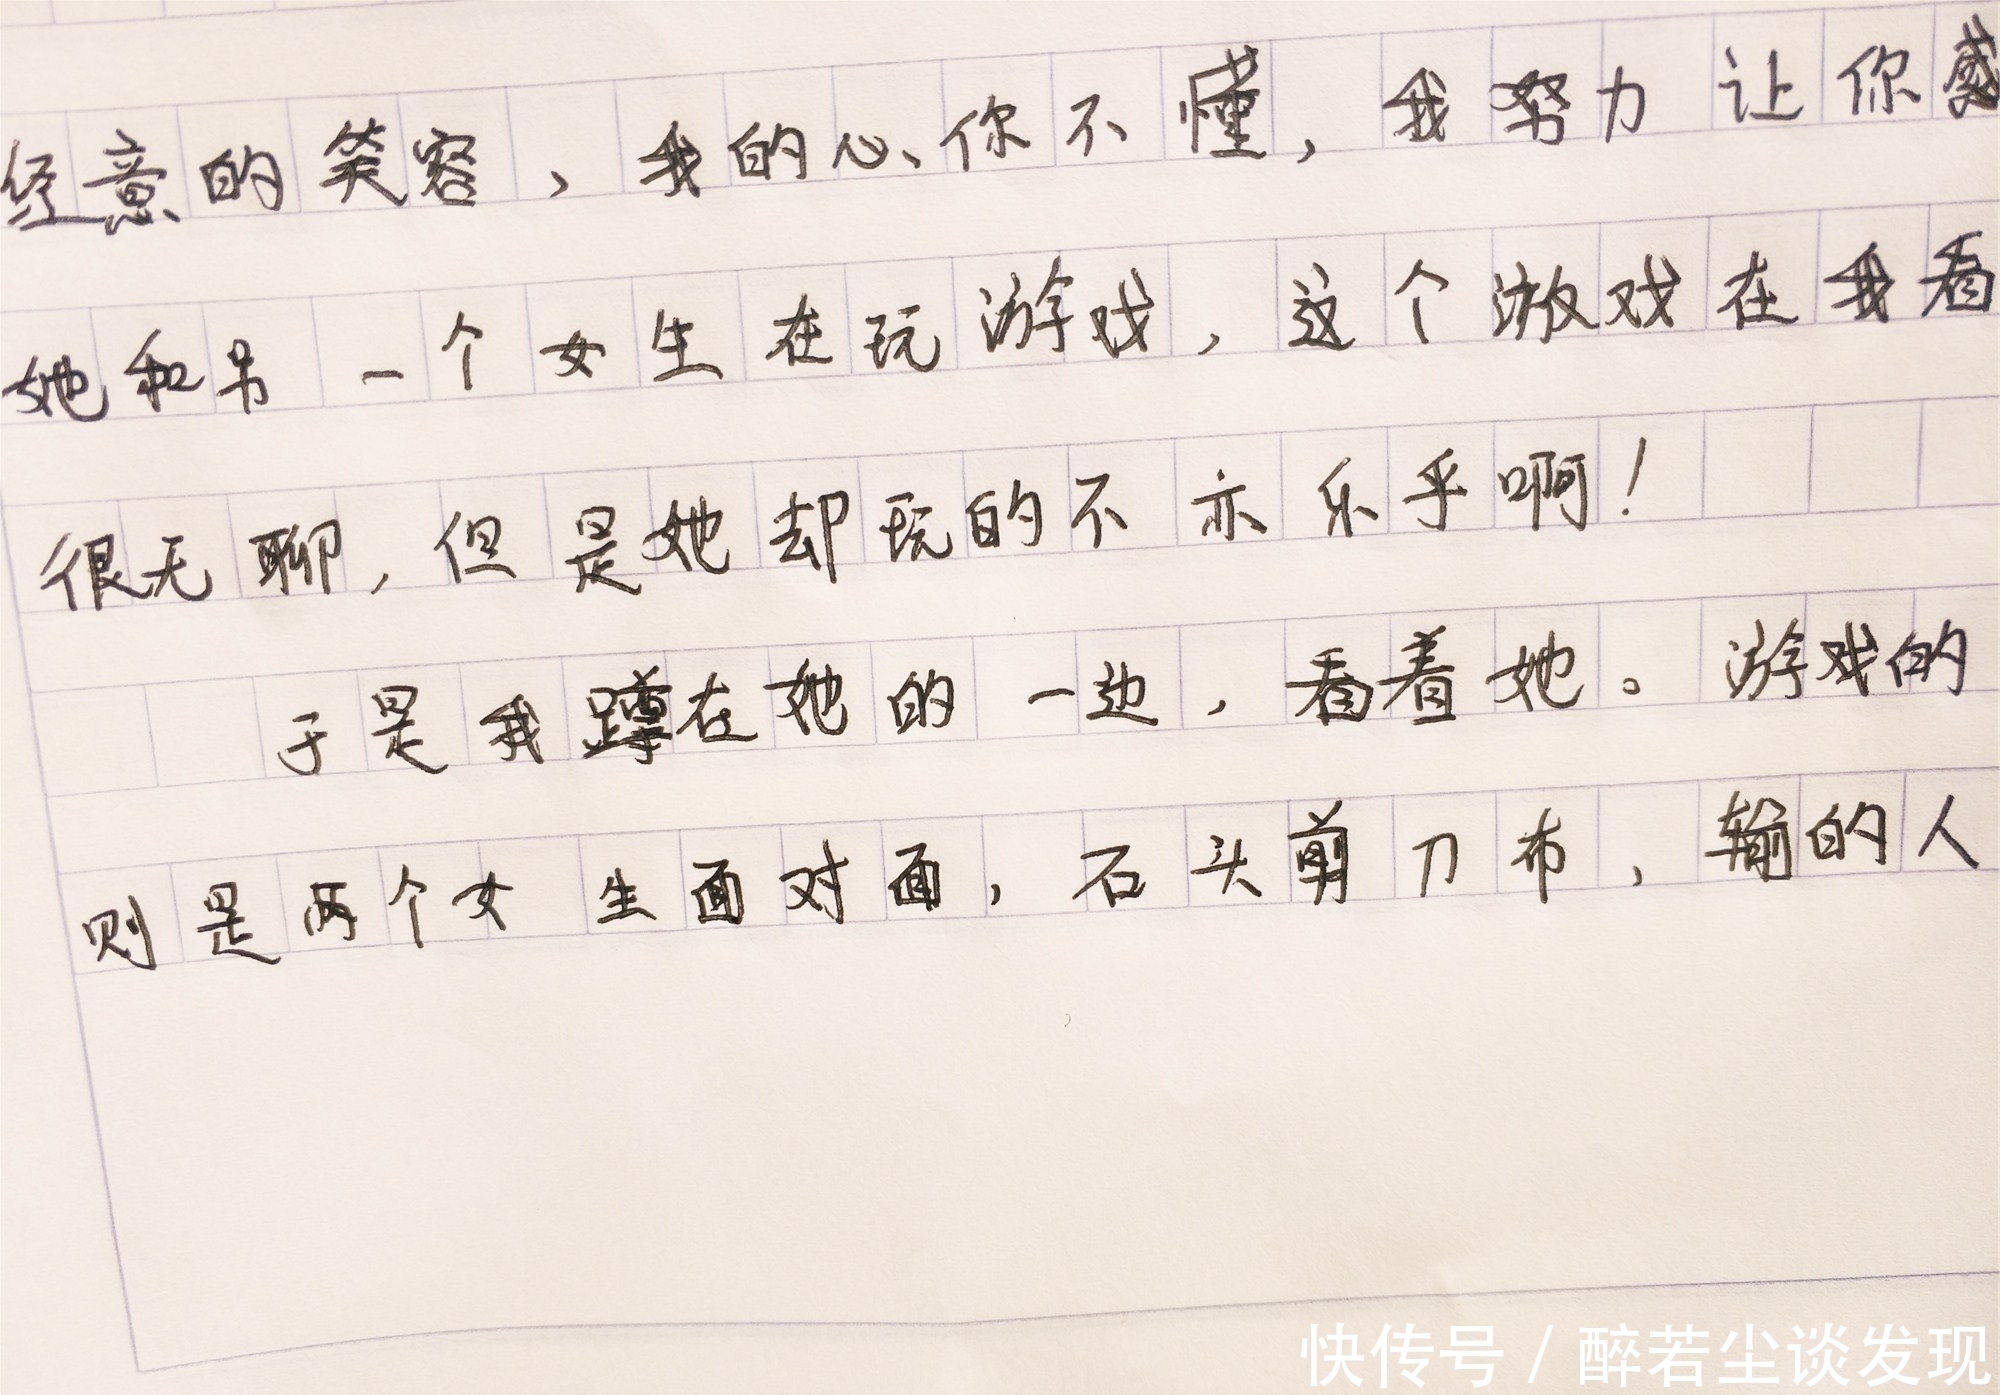 经意的笑容，我的心你不懂，我努力让你感
她和另一个女生在玩游戏，这个游戏在我看
很无聊，但是她却玩的不亦乐乎啊！
于是我蹲在她的一边，看着她。游戏的
则是两个女生面对面，石头剪刀布，输的人
快传号 / 醉若尘谈发现